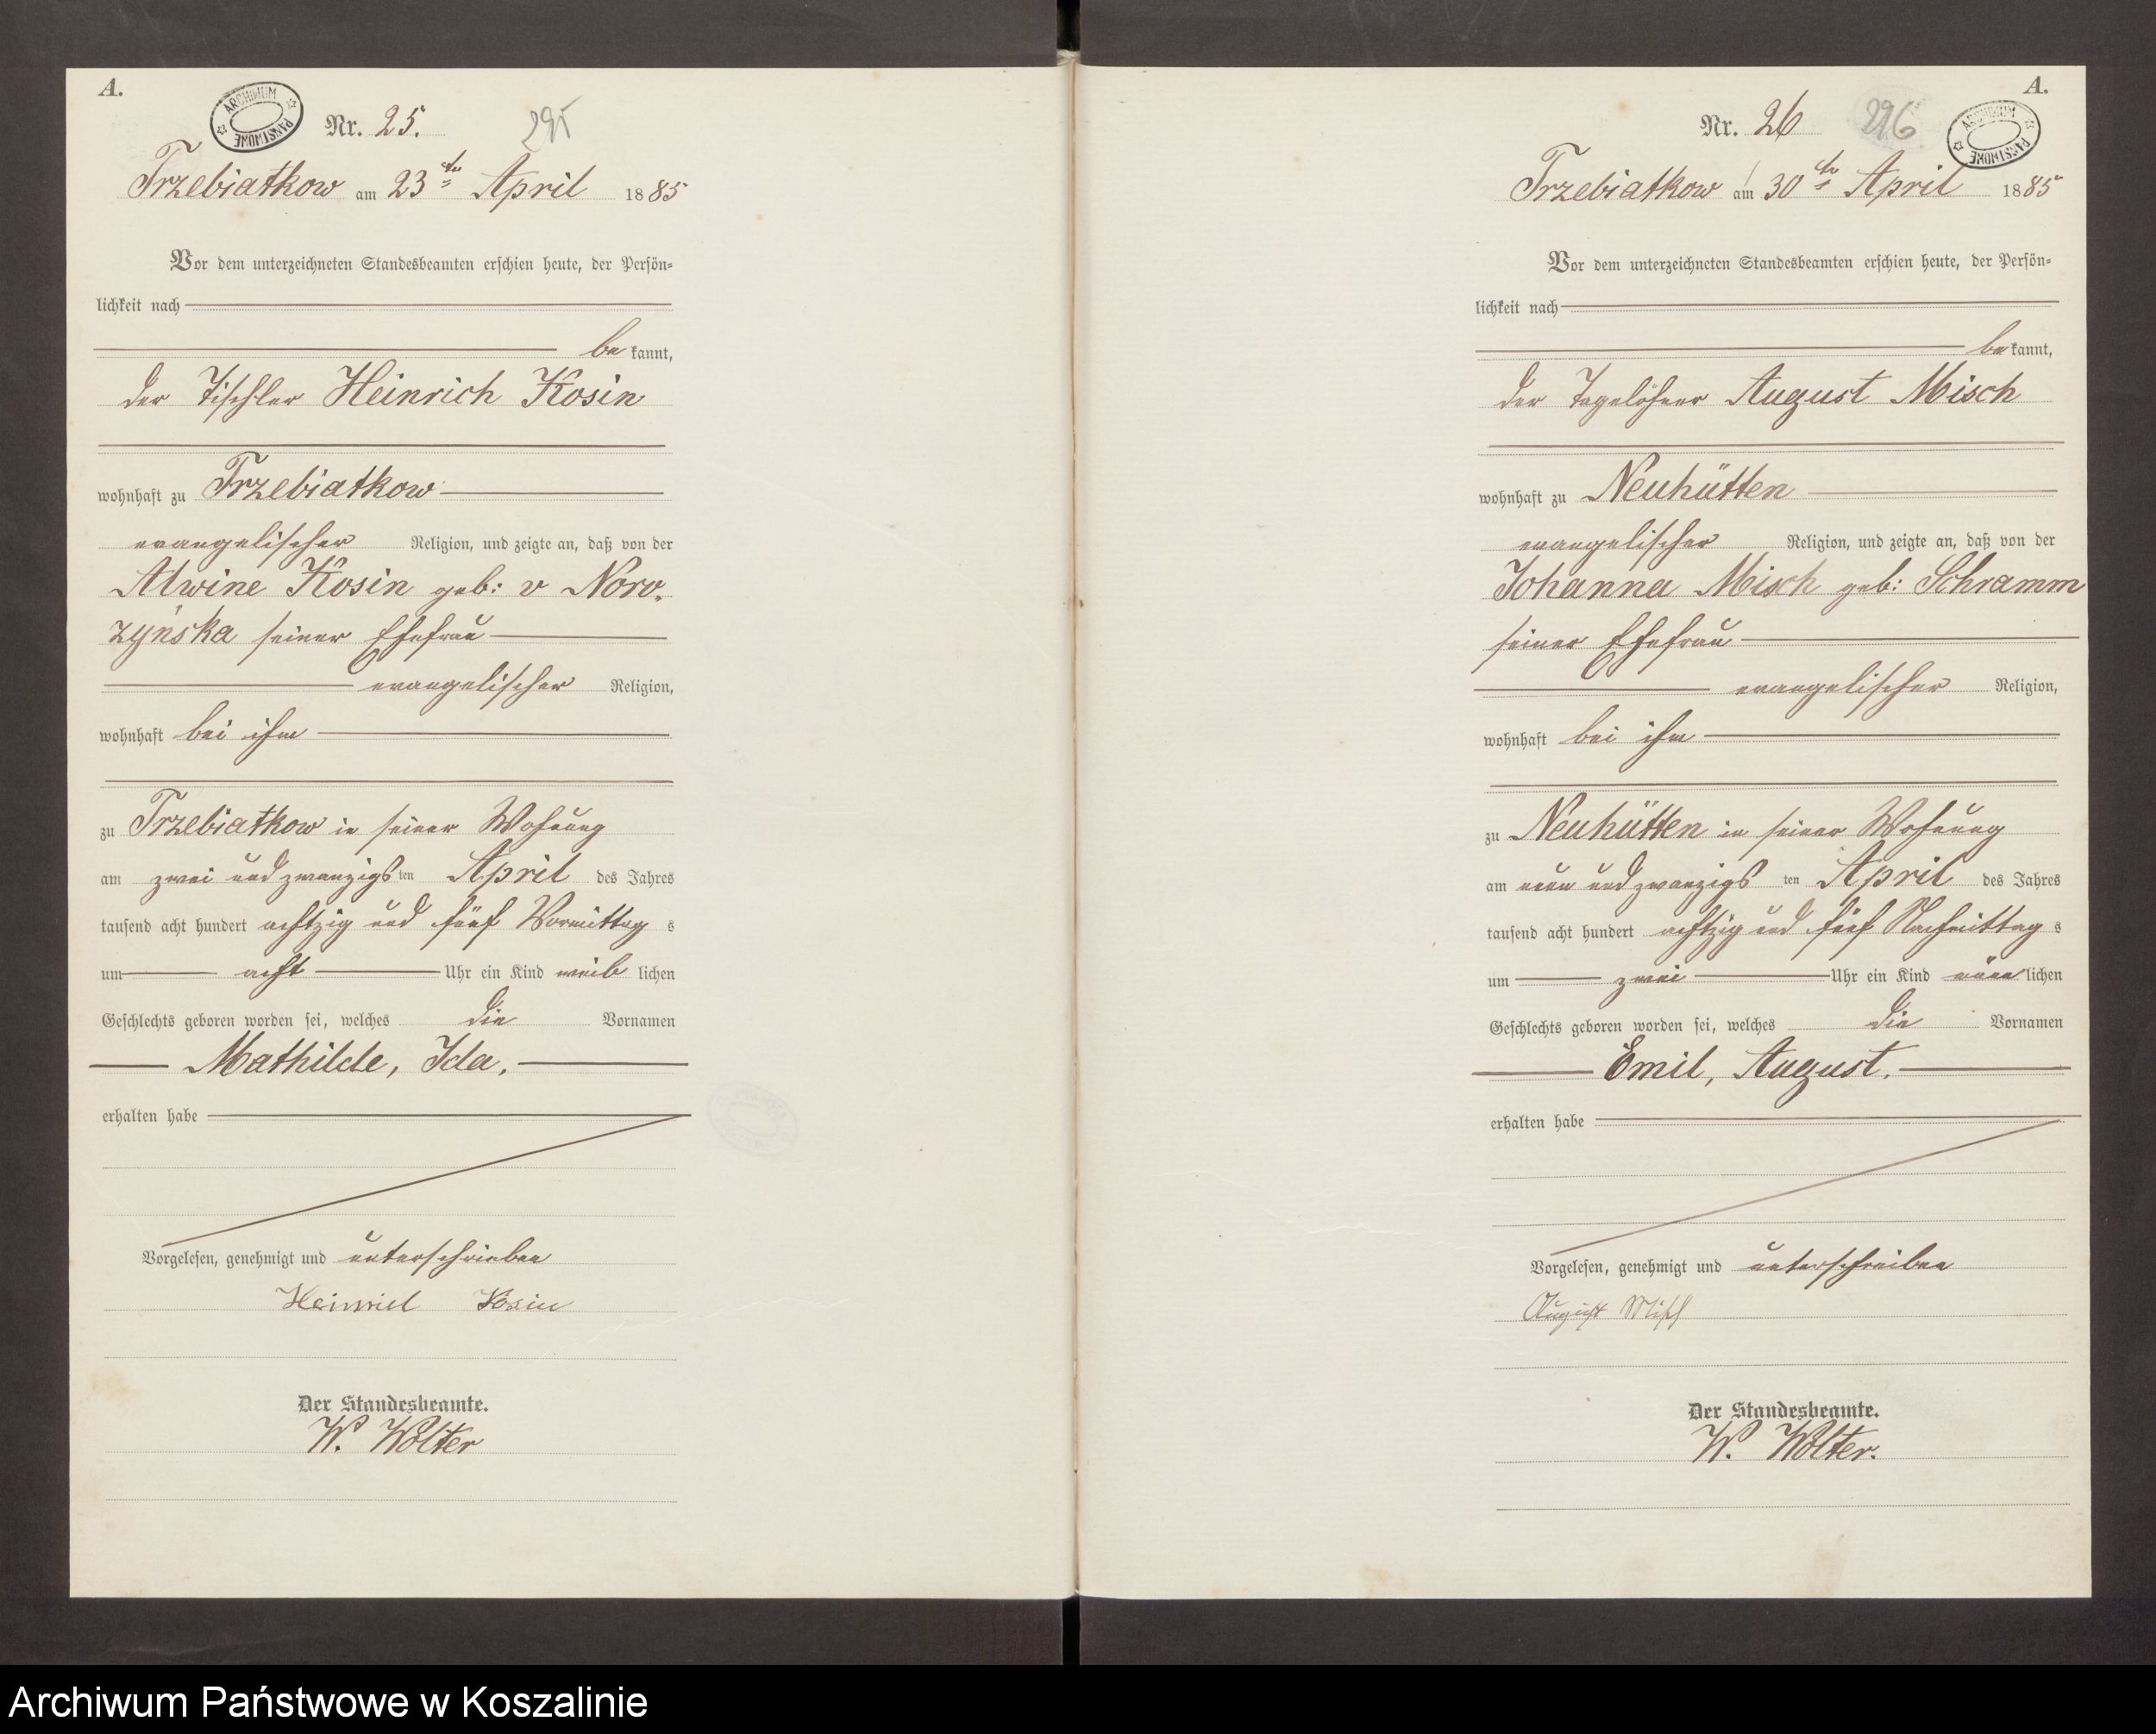 A.
ARCHIWUM PAŃSTWOWE
Nr. 25.
295
Trzebiatkow am 23ten April 1885
Vor dem unterzeichneten Standesbeamten erschien heute, der Persön-
lichkeit nach
bekannt,
der Tischler Heinrich Kosin
wohnhaft zu Trzebiatkow
evangelischer Religion, und zeigte an, daß von der
Alwine Kosin geb: v Now.
zynska seiner Ehefrau
evangelischer Religion,
wohnhaft bei ihm
zu Trzebiatkow in seiner Wohnung
am zwei und zwanzigsten April des Jahres
tausend acht hundert achtzig und fünf Vormittags
um acht Uhr ein Kind weiblichen
Geschlechts geboren worden sei, welches die Vornamen
Mathilde, Ida.
erhalten habe
Vorgelesen, genehmigt und unterschrieben
Heinrich Kosin
Der Standesbeamte.
W. Wolter
A.
ARCHIWUM PAŃSTWOWE
Nr. 26
296
Trzebiatkow am 30ten April 1885
Vor dem unterzeichneten Standesbeamten erschien heute, der Persön-
lichkeit nach
bekannt,
der Tagelöhner August Misch
wohnhaft zu Neuhütten
evangelischer Religion, und zeigte an, daß von der
Johanna Misch geb: Schramm
seiner Ehefrau
evangelischer Religion,
wohnhaft bei ihm
zu Neuhütten in seiner Wohnung
am neun und zwanzigsten April des Jahres
tausend acht hundert achtzig und fünf Nachmittags
um zwei Uhr ein Kind männlichen
Geschlechts geboren worden sei, welches die Vornamen
Emil, August.
erhalten habe
Vorgelesen, genehmigt und unterschreiben
August Misch
Der Standesbeamte.
W. Wolter.
Archiwum Państwowe w Koszalinie